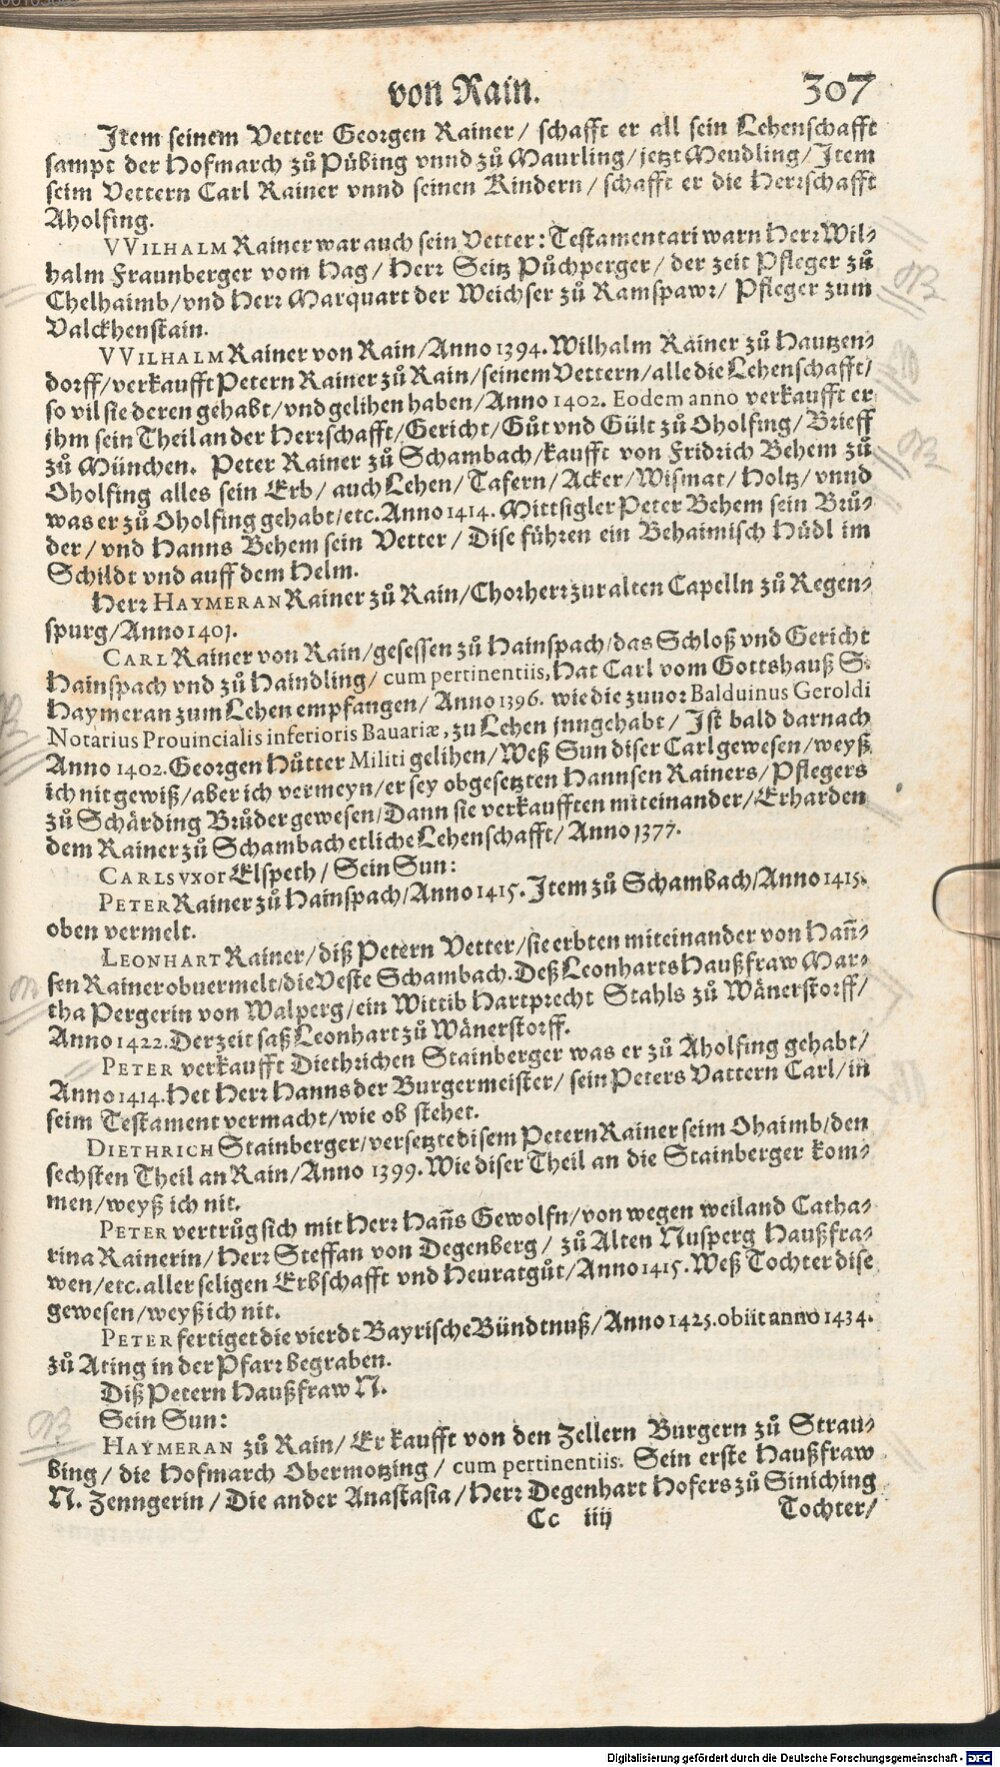 von Rain. 307
Item seinem Vetter Georgen Rainer / schafft er all sein Lehenschafft
sampt der Hofmarch zů Půbing vnnd zů Maurling / jetzt Meudling / Item
seim Vettern Carl Rainer vnnd seinen Kindern / schafft er die Herrschafft
Aholfing.
VVILHALM Rainer war auch sein Vetter: Testamentari warn Herr Wil-
halm Fraunberger vom Hag / Herr Seitz Půchperger / der zeit Pfleger zů
Chelhaimb / vnd Herr Marquart der Weichser zů Ramspawr / Pfleger zum
Valckhenstain.
VVILHALM Rainer von Rain / Anno 1394. Wilhalm Rainer zů Hautzen-
dorff / verkaufft Petern Rainer zů Rain / seinem Vettern / alle die Lehenschafft /
so vil sie deren gehabt / vnd gelihen haben / Anno 1402. Eodem anno verkaufft er
jhm sein Theil an der Herrschafft / Gericht / Gůt vnd Gült zů Oholfing / Brieff
zů München. Peter Rainer zů Schambach / kaufft von Fridrich Behem zů
Oholfing alles sein Erb / auch Lehen / Tafern / Acker / Wismat / Holtz / vnnd
was er zů Oholfing gehabt / etc. Anno 1414. Mittsigler Peter Behem sein Brů-
der / vnd Hanns Behem sein Vetter / Dise führen ein Behaimisch Hüdl im
Schildt vnd auff dem Helm.
Herr HAYMERAN Rainer zů Rain / Chorherr zur alten Capelln zů Regen-
spurg / Anno 1401.
CARL Rainer von Rain / gesessen zů Hainspach / das Schloß vnd Gericht
Hainspach vnd zů Haindling / cum pertinentiis, Hat Carl vom Gottshauß S.
Haymeran zum Lehen empfangen / Anno 1396. wie die zuuor Balduinus Geroldi
Notarius Prouincialis inferioris Bauariæ, zu Lehen jnngehabt / Ist bald darnach
Anno 1402. Georgen Hütter Militi gelihen / Weß Sun diser Carl gewesen / weyß
ich nit gewiß / aber ich vermeyn / er sey obgesetzten Hannsen Rainers / Pflegers
zů Schärding Brůder gewesen / Dann sie verkaufften miteinander / Erharden
dem Rainer zů Schambach etliche Lehenschafft / Anno 1377.
CARLS vxor Elspeth / Sein Sun:
PETER Rainer zů Hainspach / Anno 1415. Item zů Schambach / Anno 1415.
oben vermelt.
LEONHART Rainer / diß Petern Vetter / sie erbten miteinander von Hañ-
sen Rainer obuermelt / die Veste Schambach. Deß Leonharts Haußfraw Mar-
tha Pergerin von Walperg / ein Wittib Hartprecht Stahls zů Wänerstorff /
Anno 1422. Der zeit saß Leonhart zů Wänerstorff.
PETER verkaufft Diethrichen Stainberger was er zů Aholfing gehabt /
Anno 1414. Het Herr Hanns der Burgermeister / sein Peters Vattern Carl / in
seim Testament vermacht / wie ob stehet.
DIETHRICH Stainberger / versetzte disem Petern Rainer seim Ohaimb / den
sechsten Theil an Rain / Anno 1399. Wie diser Theil an die Stainberger kom-
men / weyß ich nit.
PETER vertrůg sich mit Herr Hañs Gewolfn / von wegen weiland Catha-
rina Rainerin / Herr Steffan von Degenberg / zů Alten Nusperg Haußfra-
wen / etc. aller seligen Erbschafft vnd Heuratgůt / Anno 1415. Weß Tochter dise
gewesen / weyß ich nit.
PETER fertiget die vierdt Bayrische Bündtnuß / Anno 1425. obiit anno 1434.
zů Ating in der Pfarr begraben.
Diß Petern Haußfraw N.
Sein Sun:
HAYMERAN zů Rain / Er kaufft von den Zellern Burgern zů Strau-
bing / die Hofmarch Obermotzing / cum pertinentiis. Sein erste Haußfraw
N. Zenngerin / Die ander Anastasia / Herr Degenhart Hofers zů Siniching
Cc iiij Tochter /
Digitalisierung gefördert durch die Deutsche Forschungsgemeinschaft - DFG